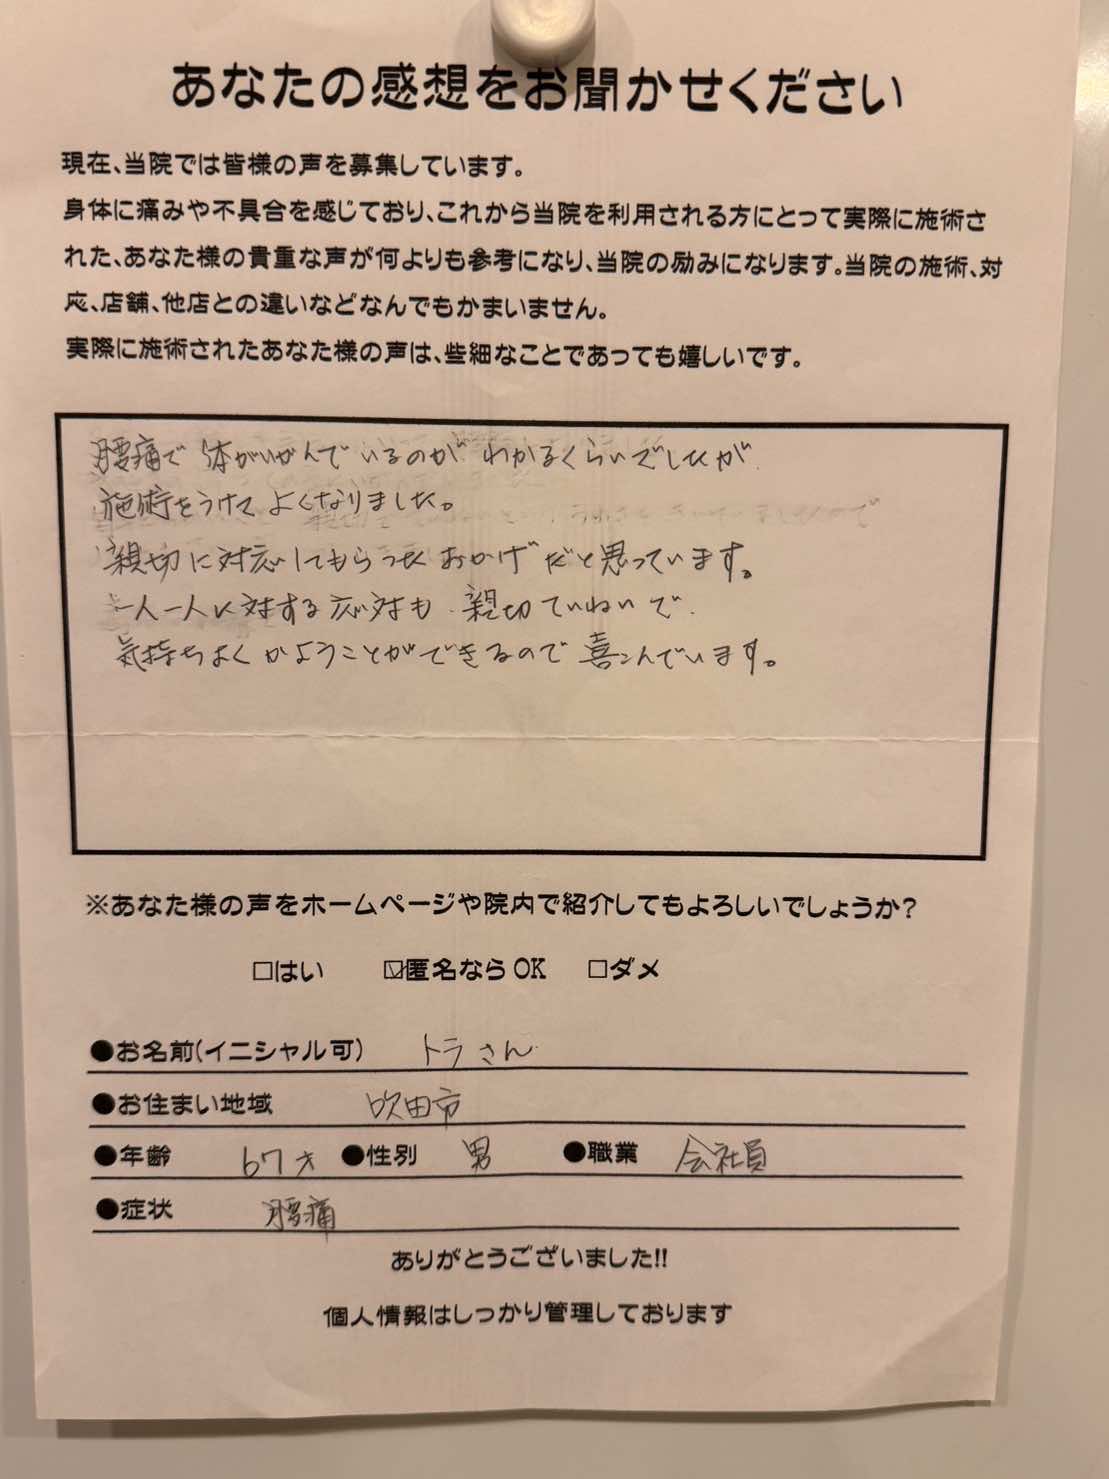 あなたの感想をお聞かせください
現在、当院では皆様の声を募集しています。
身体に痛みや不具合を感じており、これから当院を利用される方にとって実際に施術さ
れた、あなた様の貴重な声が何よりも参考になり、当院の励みになります。当院の施術、対
応、店舗、他店との違いなどなんでもかまいません。
実際に施術されたあなた様の声は、些細なことであっても嬉しいです。
腰痛で 体がゆがんでいるのが わかるくらいでしたが
施術をうけて よくなりました。
親切に対応してもらった おかげだと思っています。
一人一人に対する応対も 親切ていねいで
気持ちよくかようことができるので 喜こんでいます。
※あなた様の声をホームページや院内で紹介してもよろしいでしょうか？
□はい ☑匿名ならOK □ダメ
●お名前(イニシャル可) トラさん
●お住まい地域 吹田市
●年齢 67才 ●性別 男 ●職業 会社員
●症状 腰痛
ありがとうございました!!
個人情報はしっかり管理しております